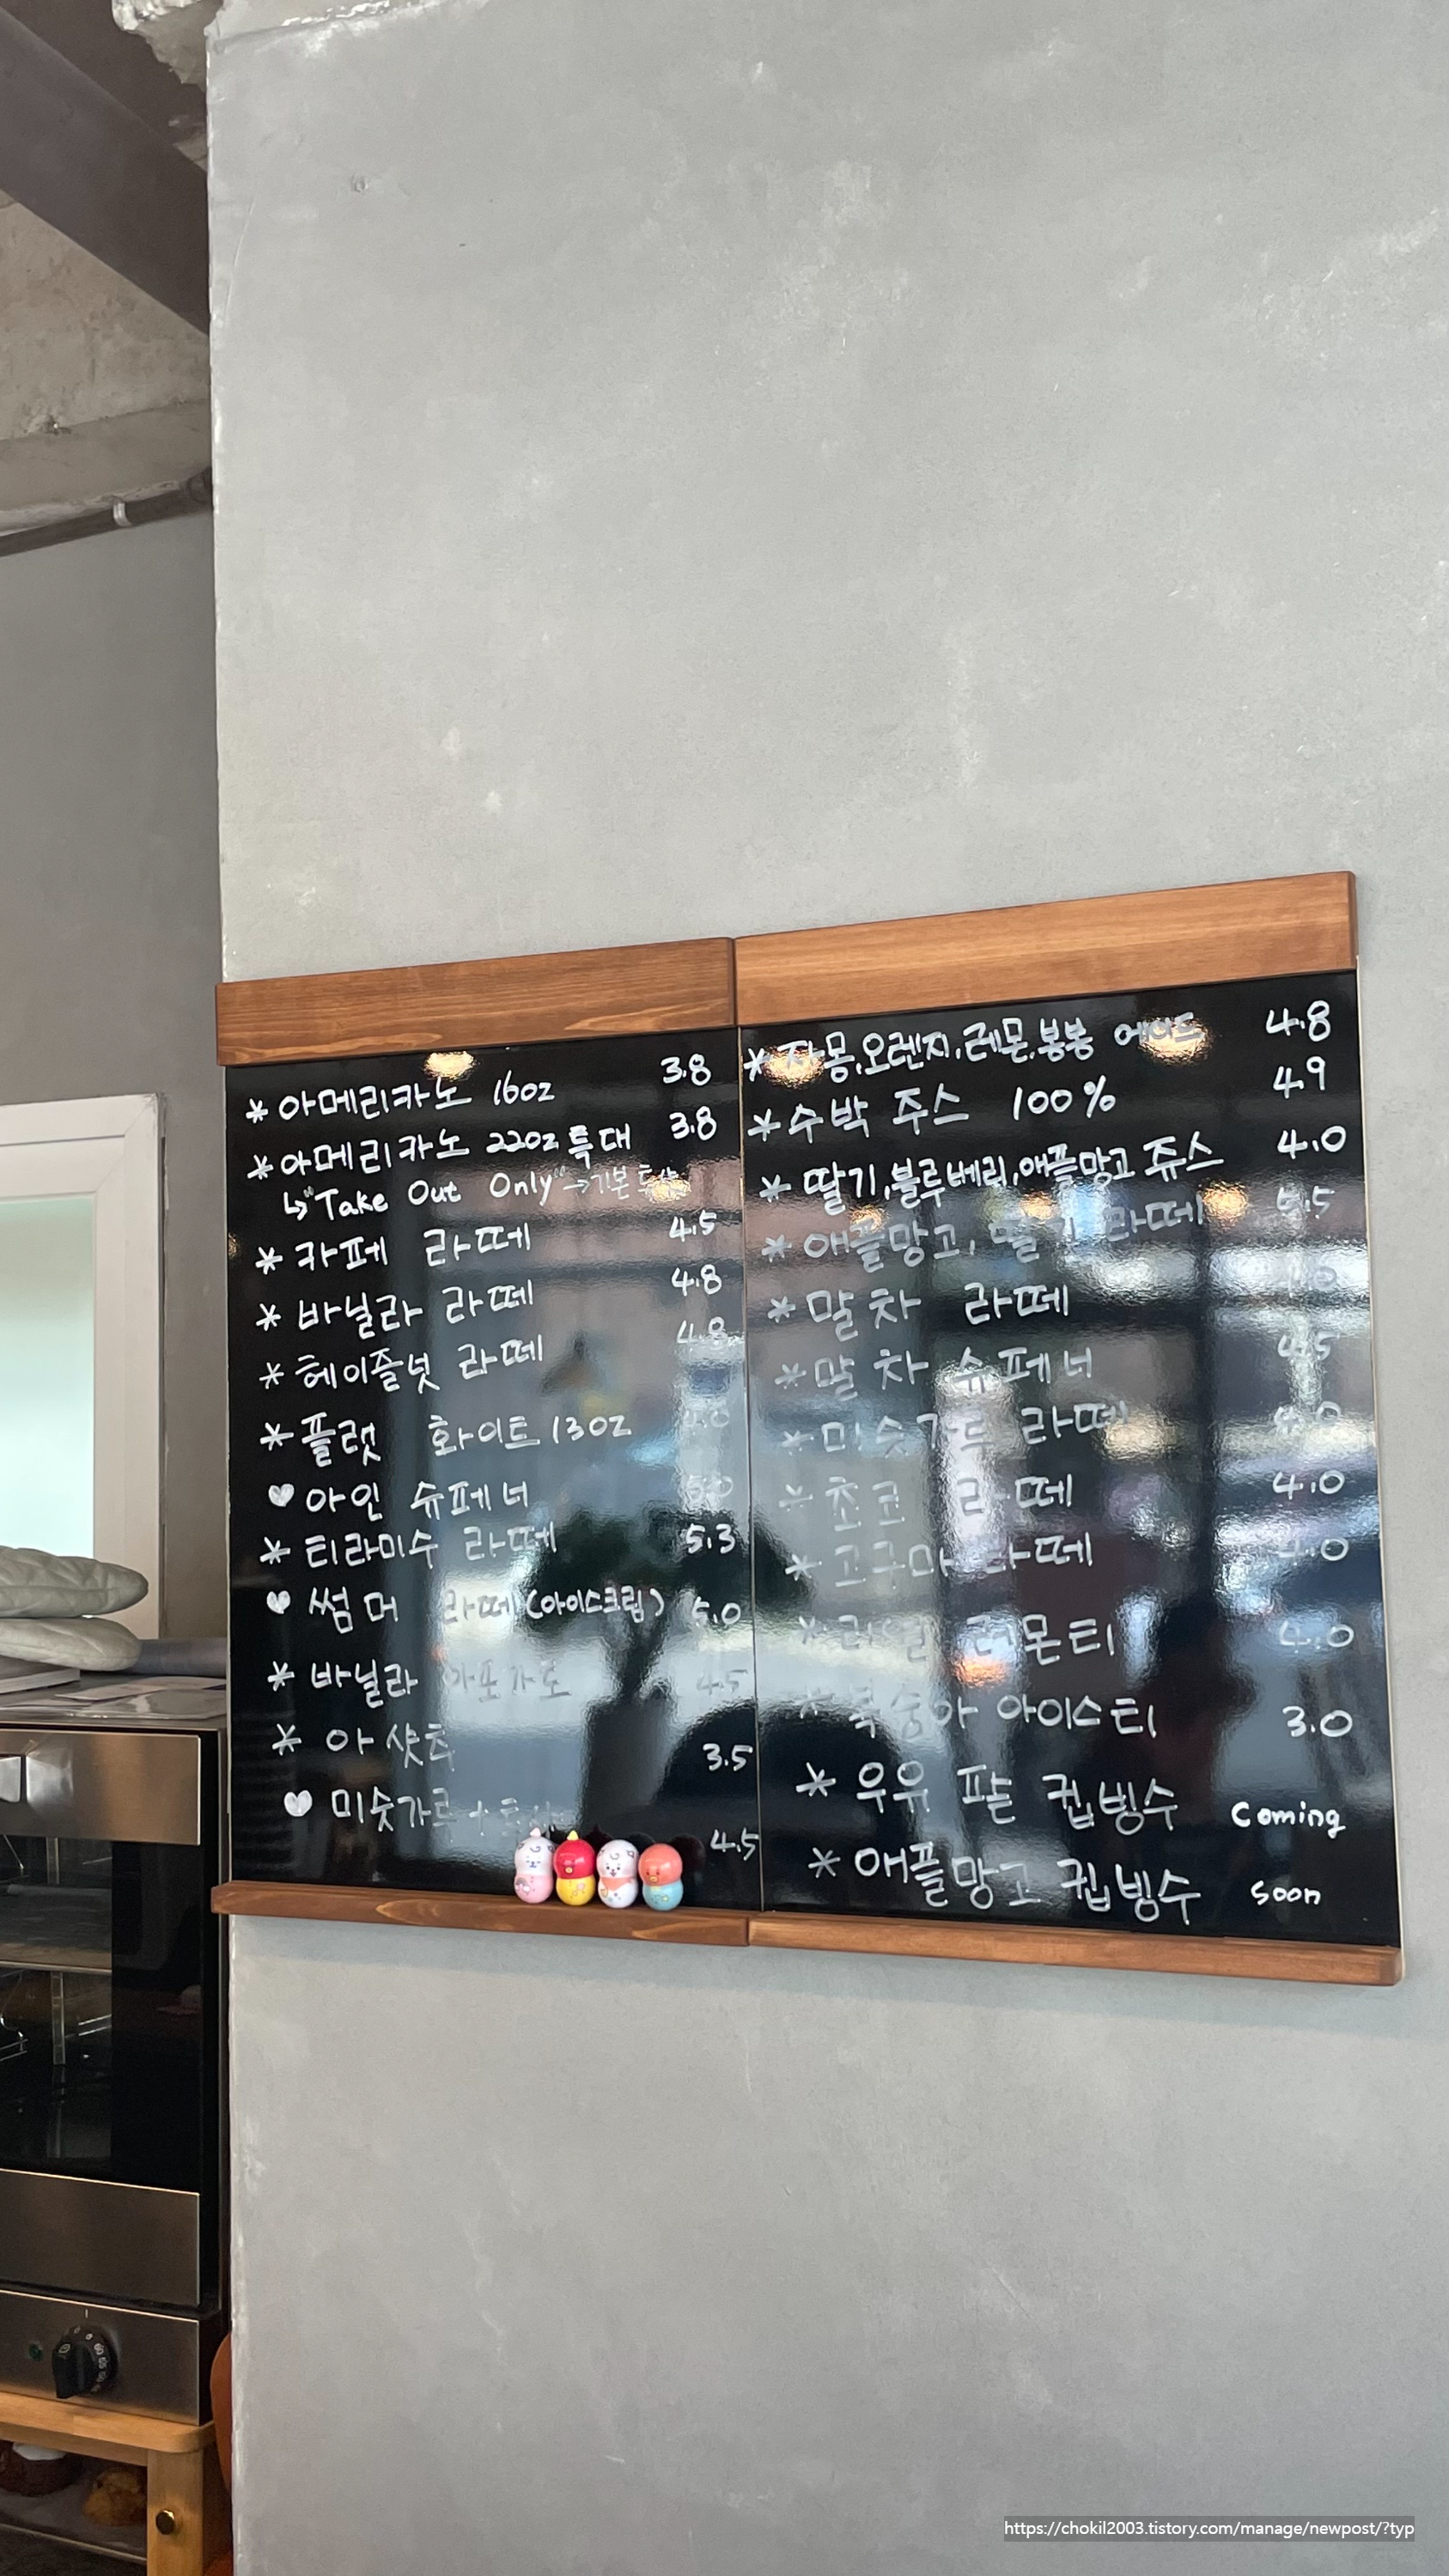 *아메리카노 16oz 3.8
*아메리카노 22oz 특대 3.8
↳"Take Out Only"→기본투샷
*카페 라떼 4.5
*바닐라 라떼 4.8
*헤이즐넛 라떼 4.8
*플랫 화이트 13oz
♥아인 슈페너
*티라미수 라떼 5.3
♥썸머 라떼(아이스크림) 5.0
*바닐라 아포가토 4.5
*아샷추 3.5
♥미숫가루 4.5
*자몽.오렌지.레몬.봉봉 에이드 4.8
*수박 쥬스 100% 4.9
*딸기.블루베리.애플망고 쥬스 4.0
*애플망고, 딸기 라떼 5.5
*말차 라떼
*말차 슈페너 4.5
*미숫가루 라떼
*초코 라떼 4.0
*고구마 라떼 4.0
레몬티 4.0
*복숭아 아이스티 3.0
*우유 팥 컵빙수 Coming
*애플망고 컵빙수 soon
https://chokil2003.tistory.com/manage/newpost/?typ